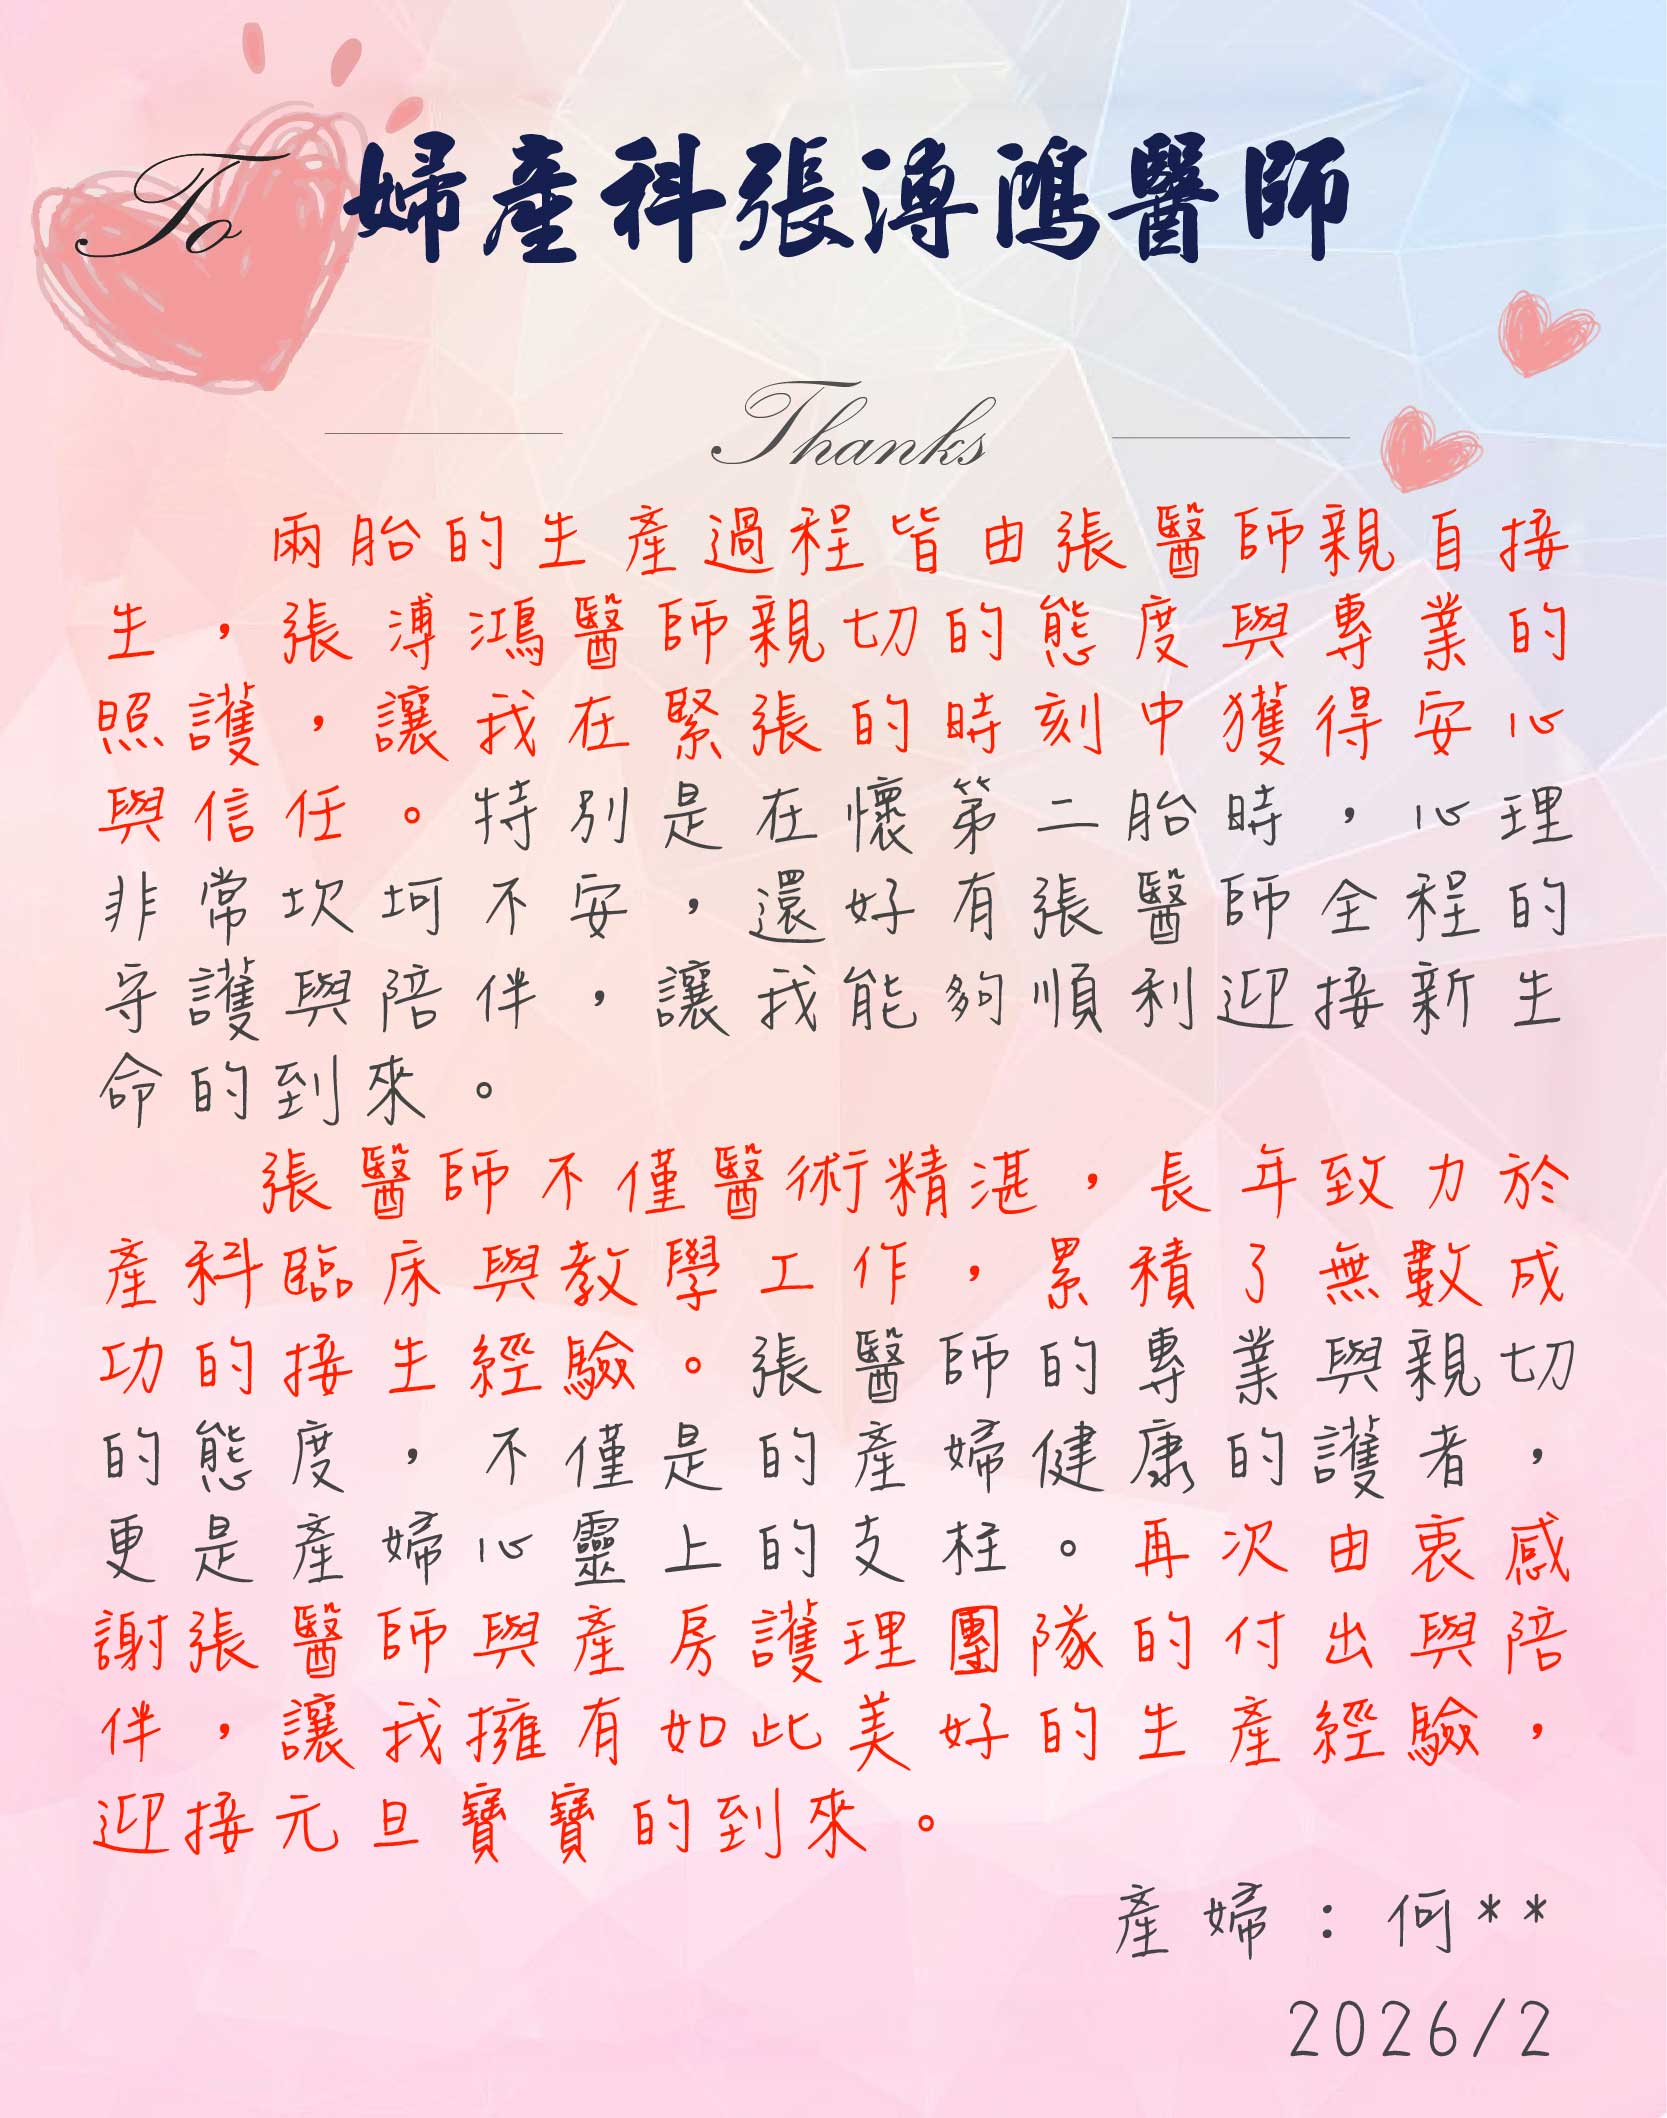 To 婦產科張溥鴻醫師
Thanks
兩胎的生產過程皆由張醫師親自接
生，張溥鴻醫師親切的態度與專業的
照護，讓我在緊張的時刻中獲得安心
與信任。特別是在懷第二胎時，心理
非常坎坷不安，還好有張醫師全程的
守護與陪伴，讓我能夠順利迎接新生
命的到來。
張醫師不僅醫術精湛，長年致力於
產科臨床與教學工作，累積了無數成
功的接生經驗。張醫師的專業與親切
的態度，不僅是的產婦健康的護者，
更是產婦心靈上的支柱。再次由衷感
謝張醫師與產房護理團隊的付出與陪
伴，讓我擁有如此美好的生產經驗，
迎接元旦寶寶的到來。
產婦：何**
2026/2